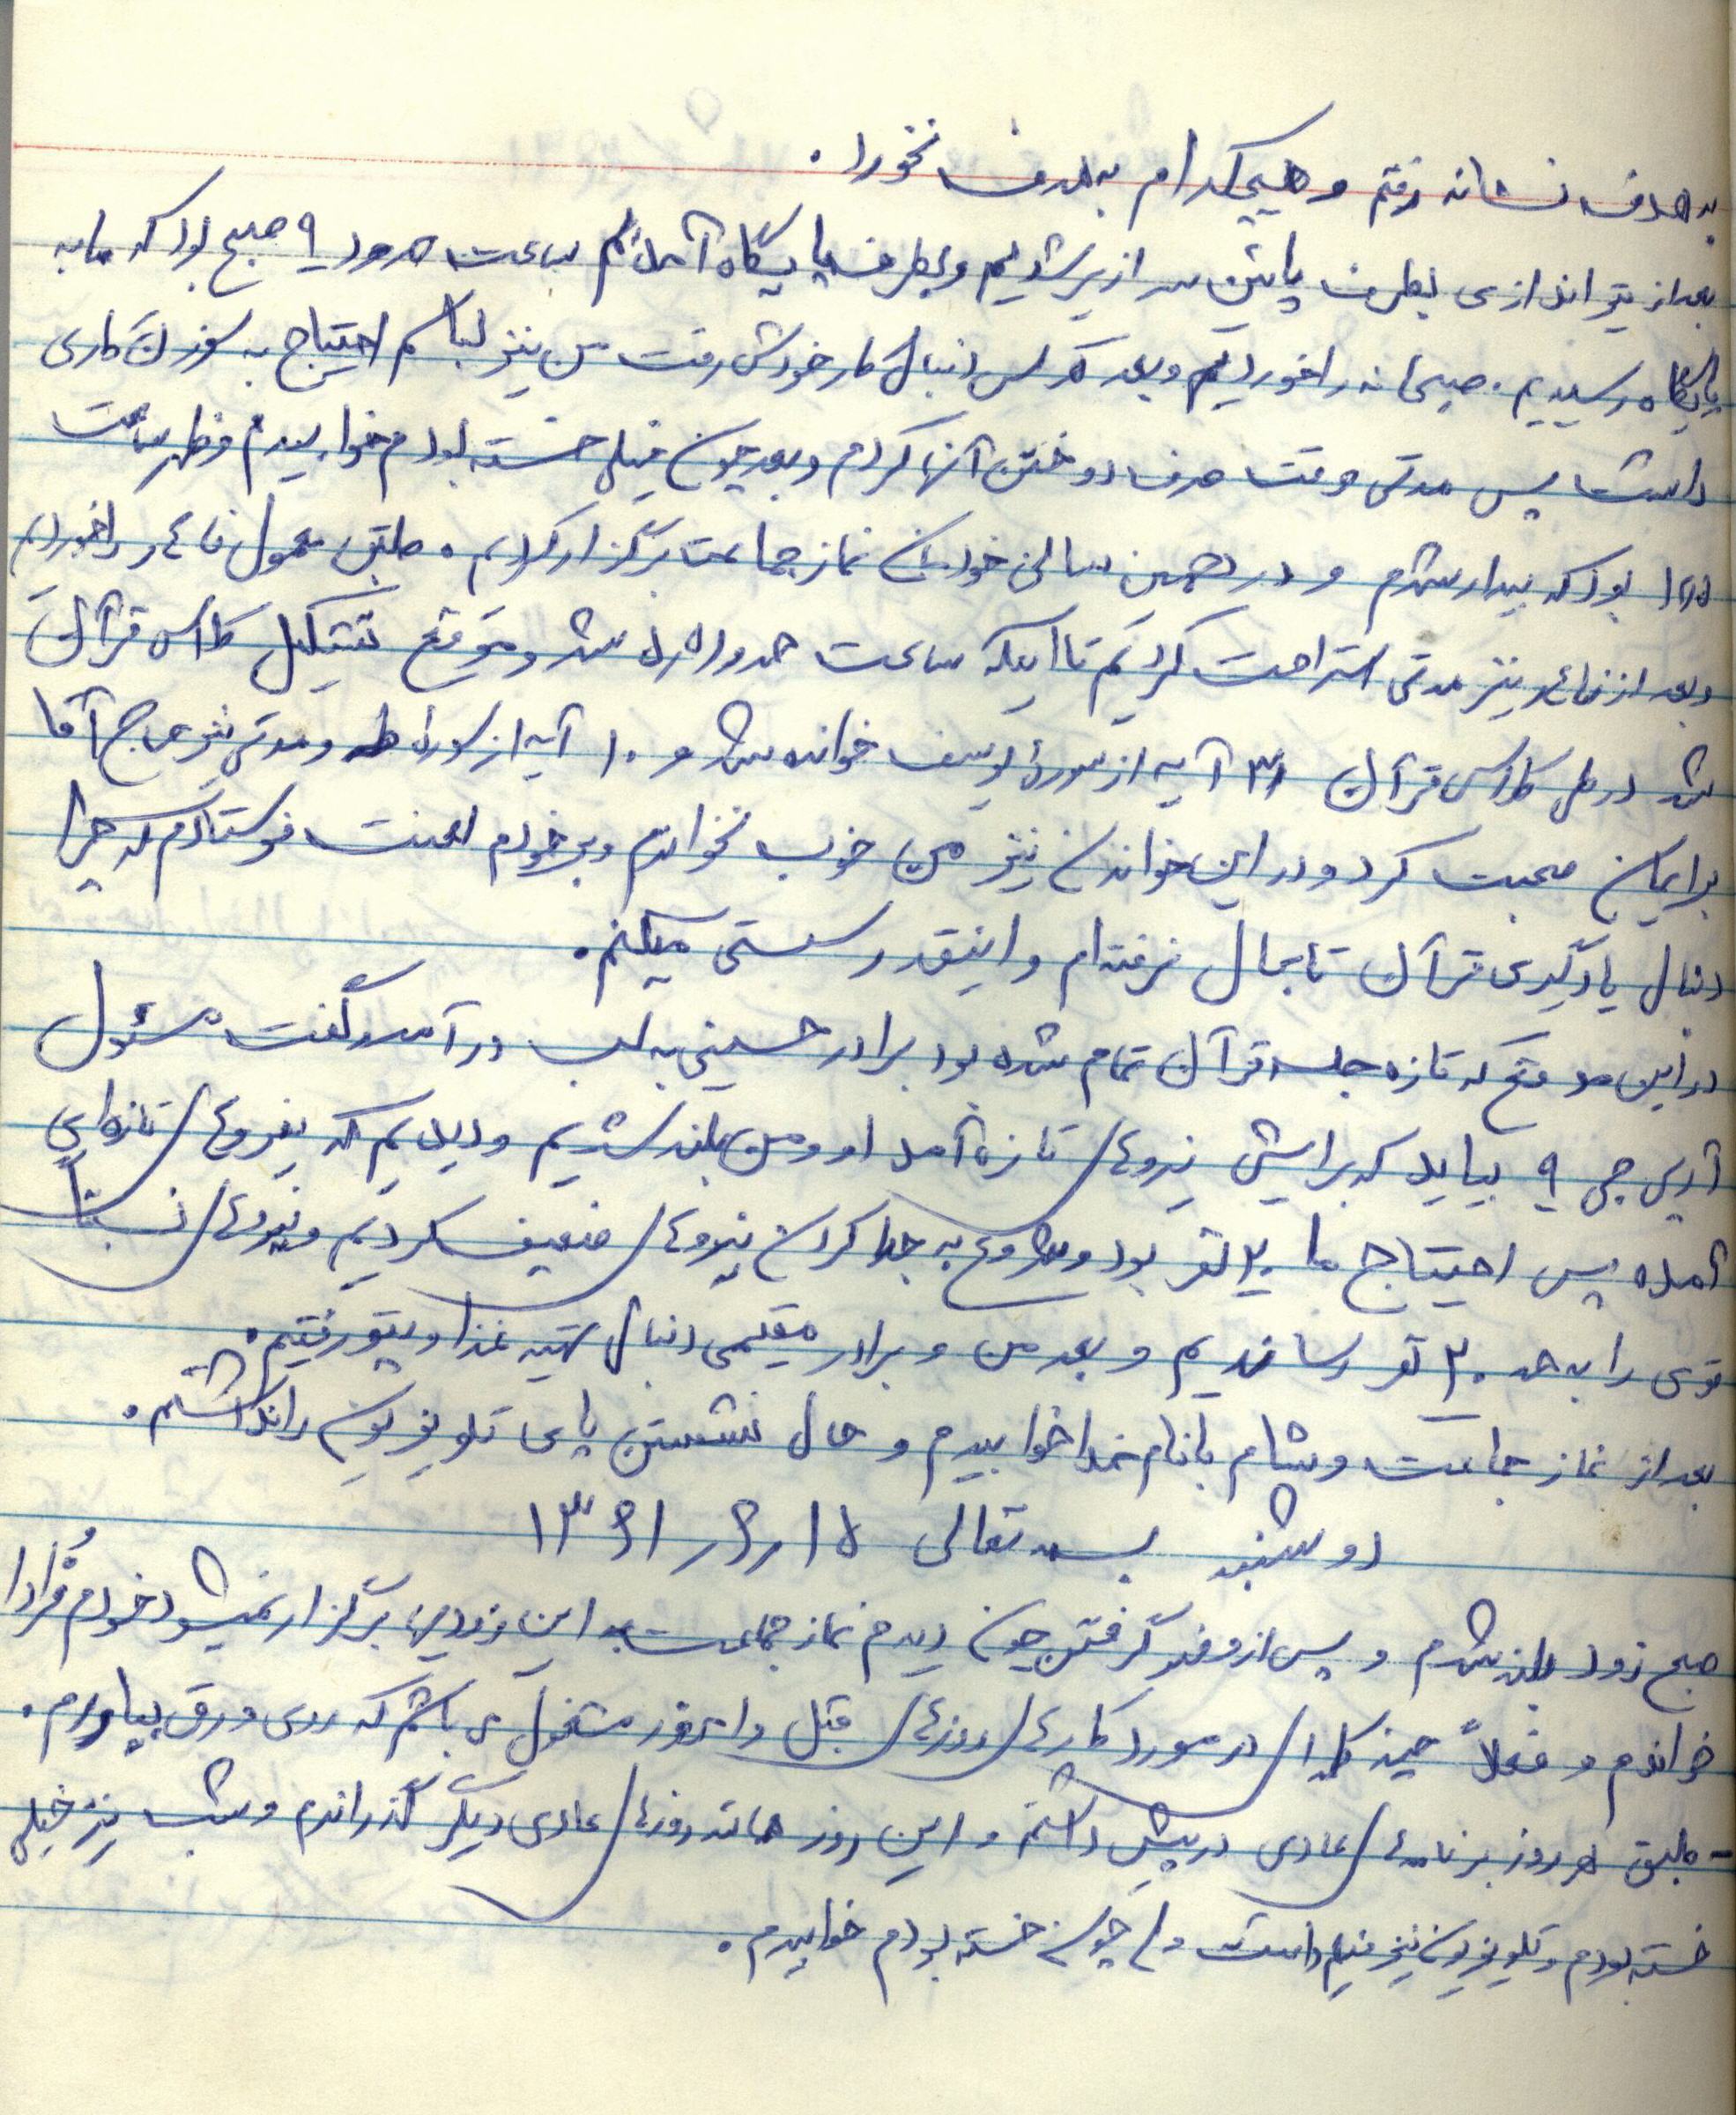 به هدف نشانه رفتم و هیچکدام به هدف نخورد.
بعد از تیراندازی بطرف پایین سرازیر شدیم و بطرف پایگاه آمدیم ساعت حدود ۹ صبح بود که ما به
پایگاه رسیدیم. صبحانه را خوردیم و بعد هر کس دنبال کار خودش رفت من نیز لباسم احتیاج به سوزن کاری
داشت پس مدتی وقت صرف دوختن آنها کردم و بعد چون خیلی خسته بودم خوابیدم و ظهر ساعت
بود که بیدار شدم و در همین سالن خودمان نماز جماعت برگزار کردیم. طبق معمول ناهار را خوردیم
و بعد از ناهار نیز مدتی استراحت کردیم تا اینکه ساعت حدود شد و موقع تشکیل کلاس قرآن
شد در طی کلاس قرآن ۳۱ آیه از سورهٔ یوسف خوانده شد و ۱۰ آیه از سوره طه و مدتی نیز حاج آقا
برایمان صحبت کرد و در این خواندن نیز من خوب نخواندم و بر خودم لعنت فرستادم که چرا
دنبال یادگیری قرآن تابحال نرفته‌ام و اینقدر سستی میکنم.
در این موقع که تازه جلسه قرآن تمام شده بود برادر حسینی به لب در آمد و گفت مسئول
آرپی جی ۹ بیاید که برایش نیروهای تازه آمد او و من بلند شدیم و دیدیم که نیروهای تازه‌ای
آمده پس احتیاج ما ۲۰ نفر بود و شروع به جدا کردن نیروهای ضعیف کردیم و نیروهای نسبتاً
قوی را به حد ۲۰ نفر رساندیم و بعد من و برادر مقیمی دنبال تهیه غذا و پتو رفتیم.
بعد از نماز جماعت و شام با نام خدا خوابیدم و حال نشستن پای تلویزیون را نداشتم.
دوشنبه بسمه تعالی ۱۵ر۶ر۱۳۶۱
صبح زود بلند شدم و پس از وضو گرفتن چون دیدم نماز جماعت به این زودیها برگزار نمیشود خودم فُرادا
خواندم و فعلاً چند کلمه‌ای در مورد کارهای روزهای قبل و امروز مشغول می باشم که روی ورق بیاورم.
- طبق هر روز برنامه‌های عادی در پیش داشتم و این روز همانند روزهای عادی دیگر گذراندم و شب نیز خیلی
خسته بودم و تلویزیون نیز فیلم داشت ولی چون خسته بودم خوابیدم.